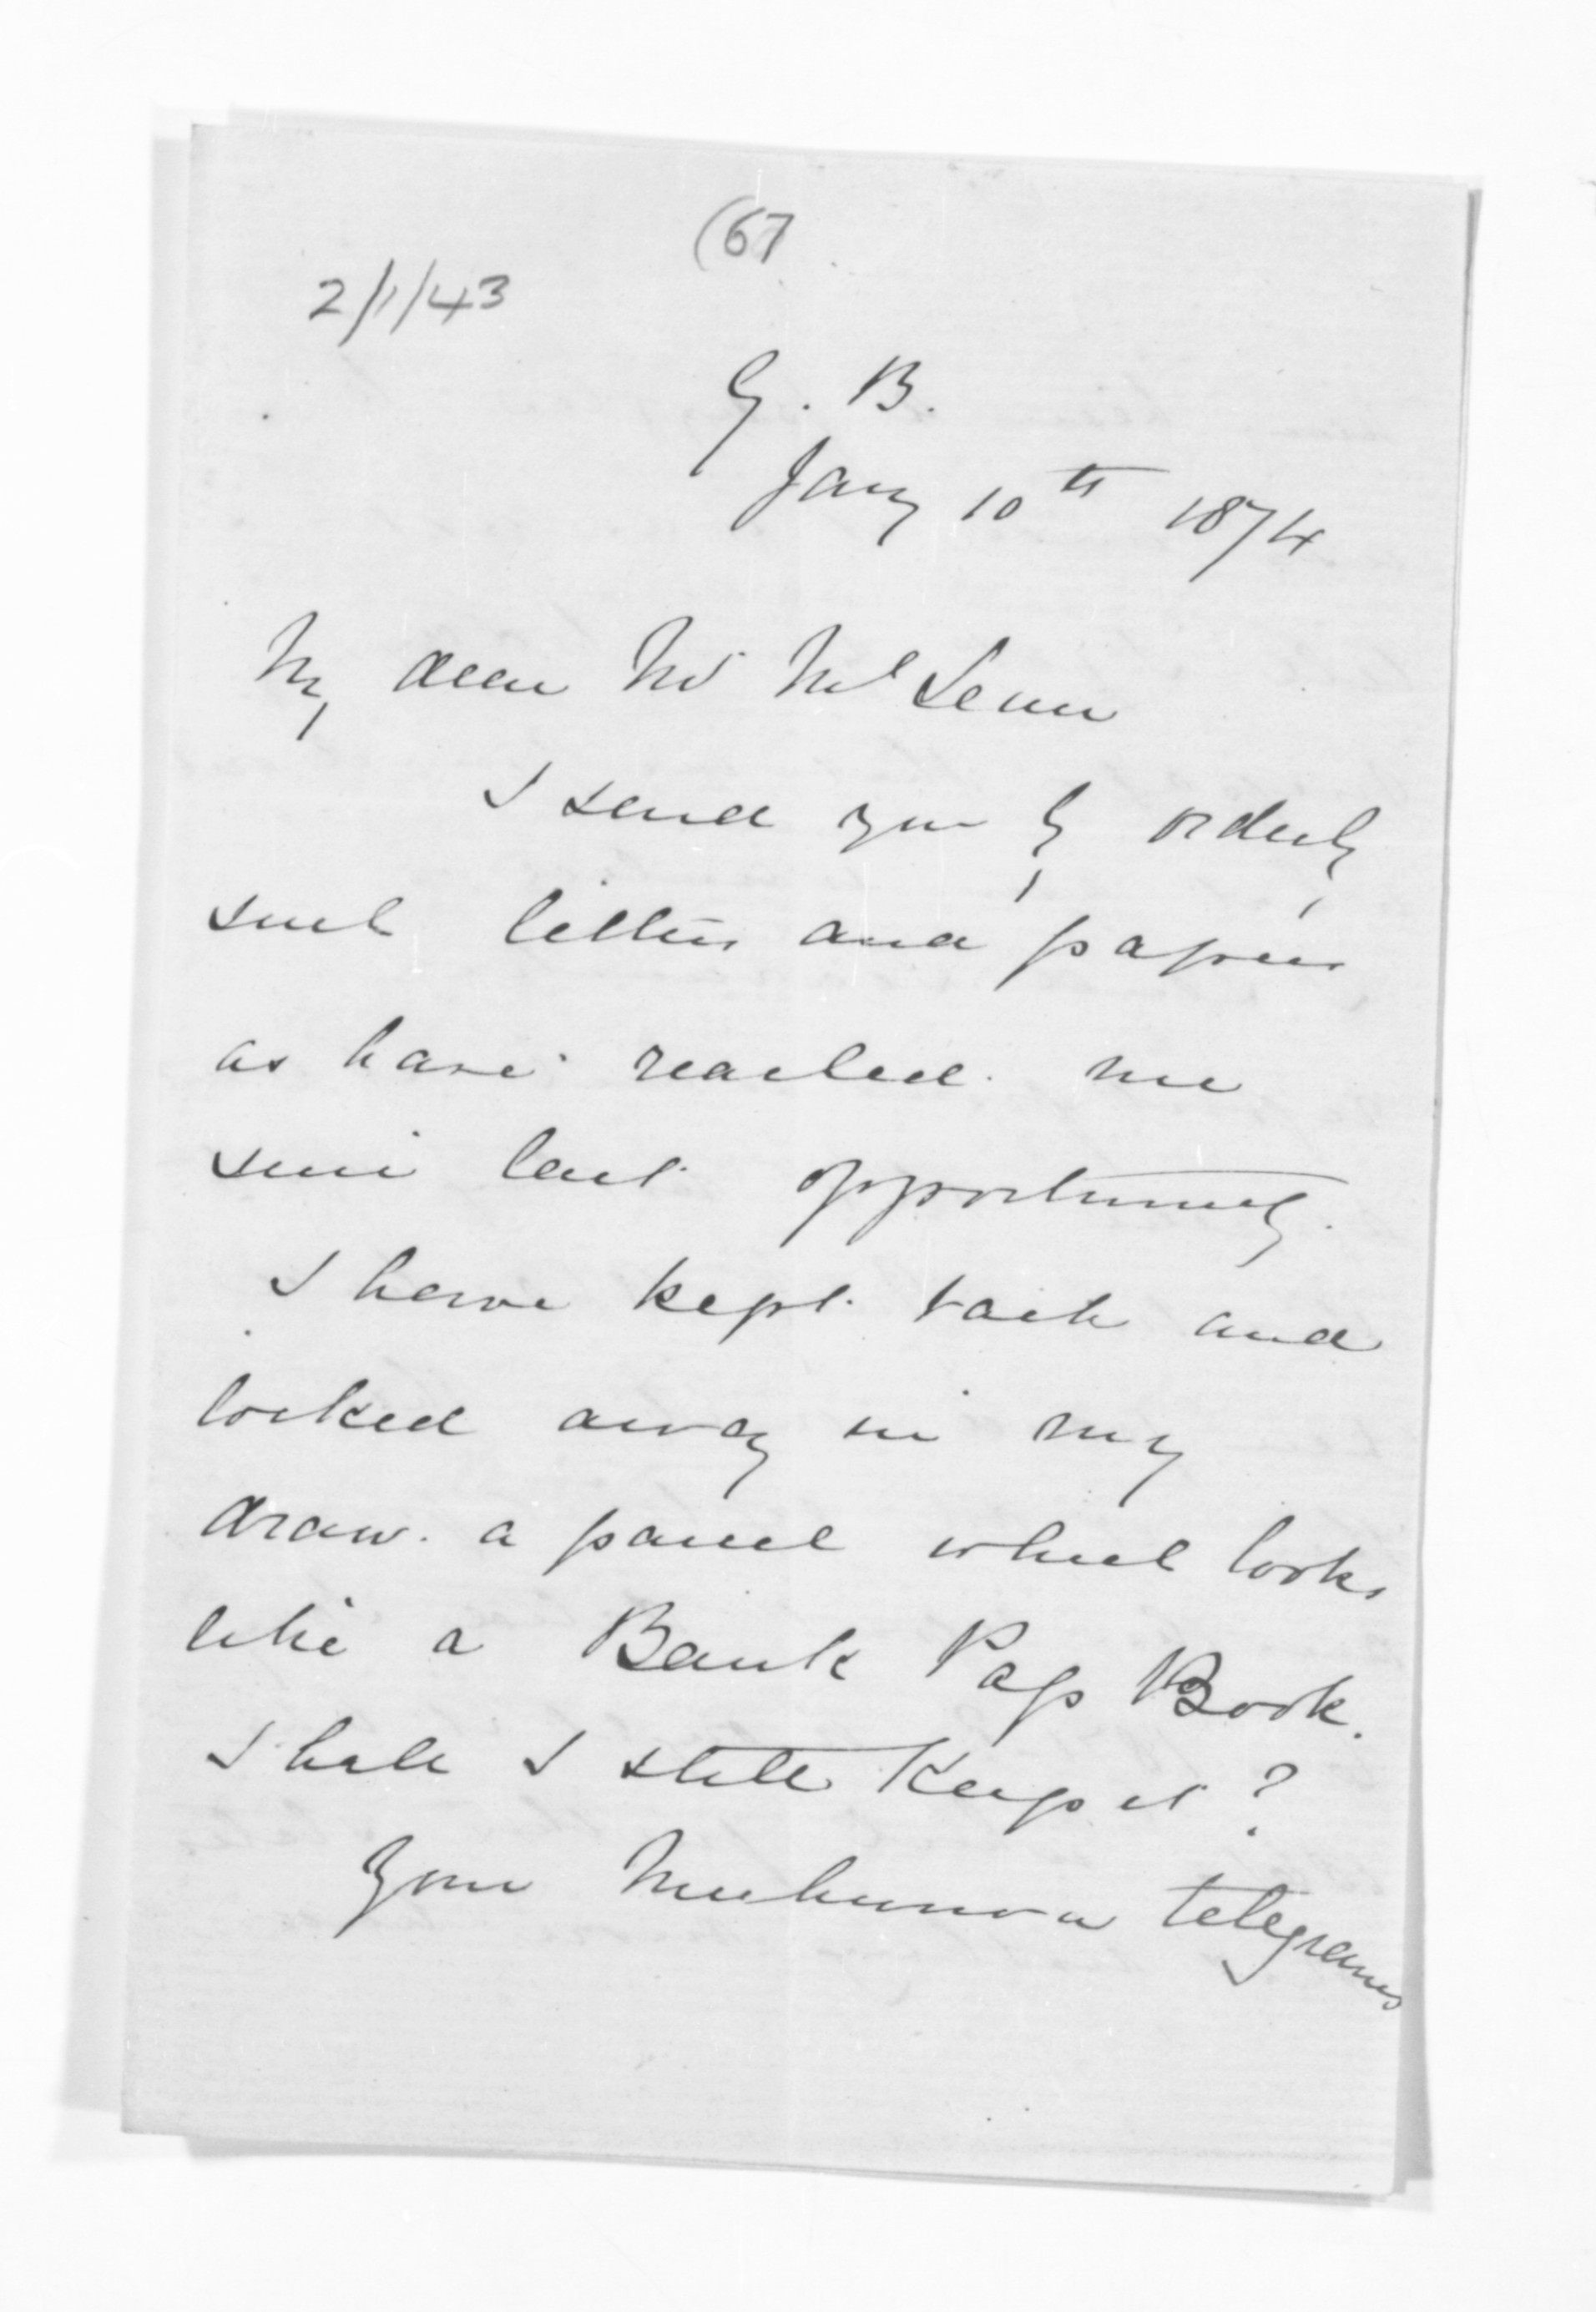 (67
2/1/43
G. B.
Jany 10th 1874
My dear Mr McLean
I send you by orderly
such letters and papers
as have reached me
since last opportunity.
I have kept back and
locked away in my
draw. a parcel which looks
like a Bank Pass Book.
Shall I still keep it?
Your telegrams